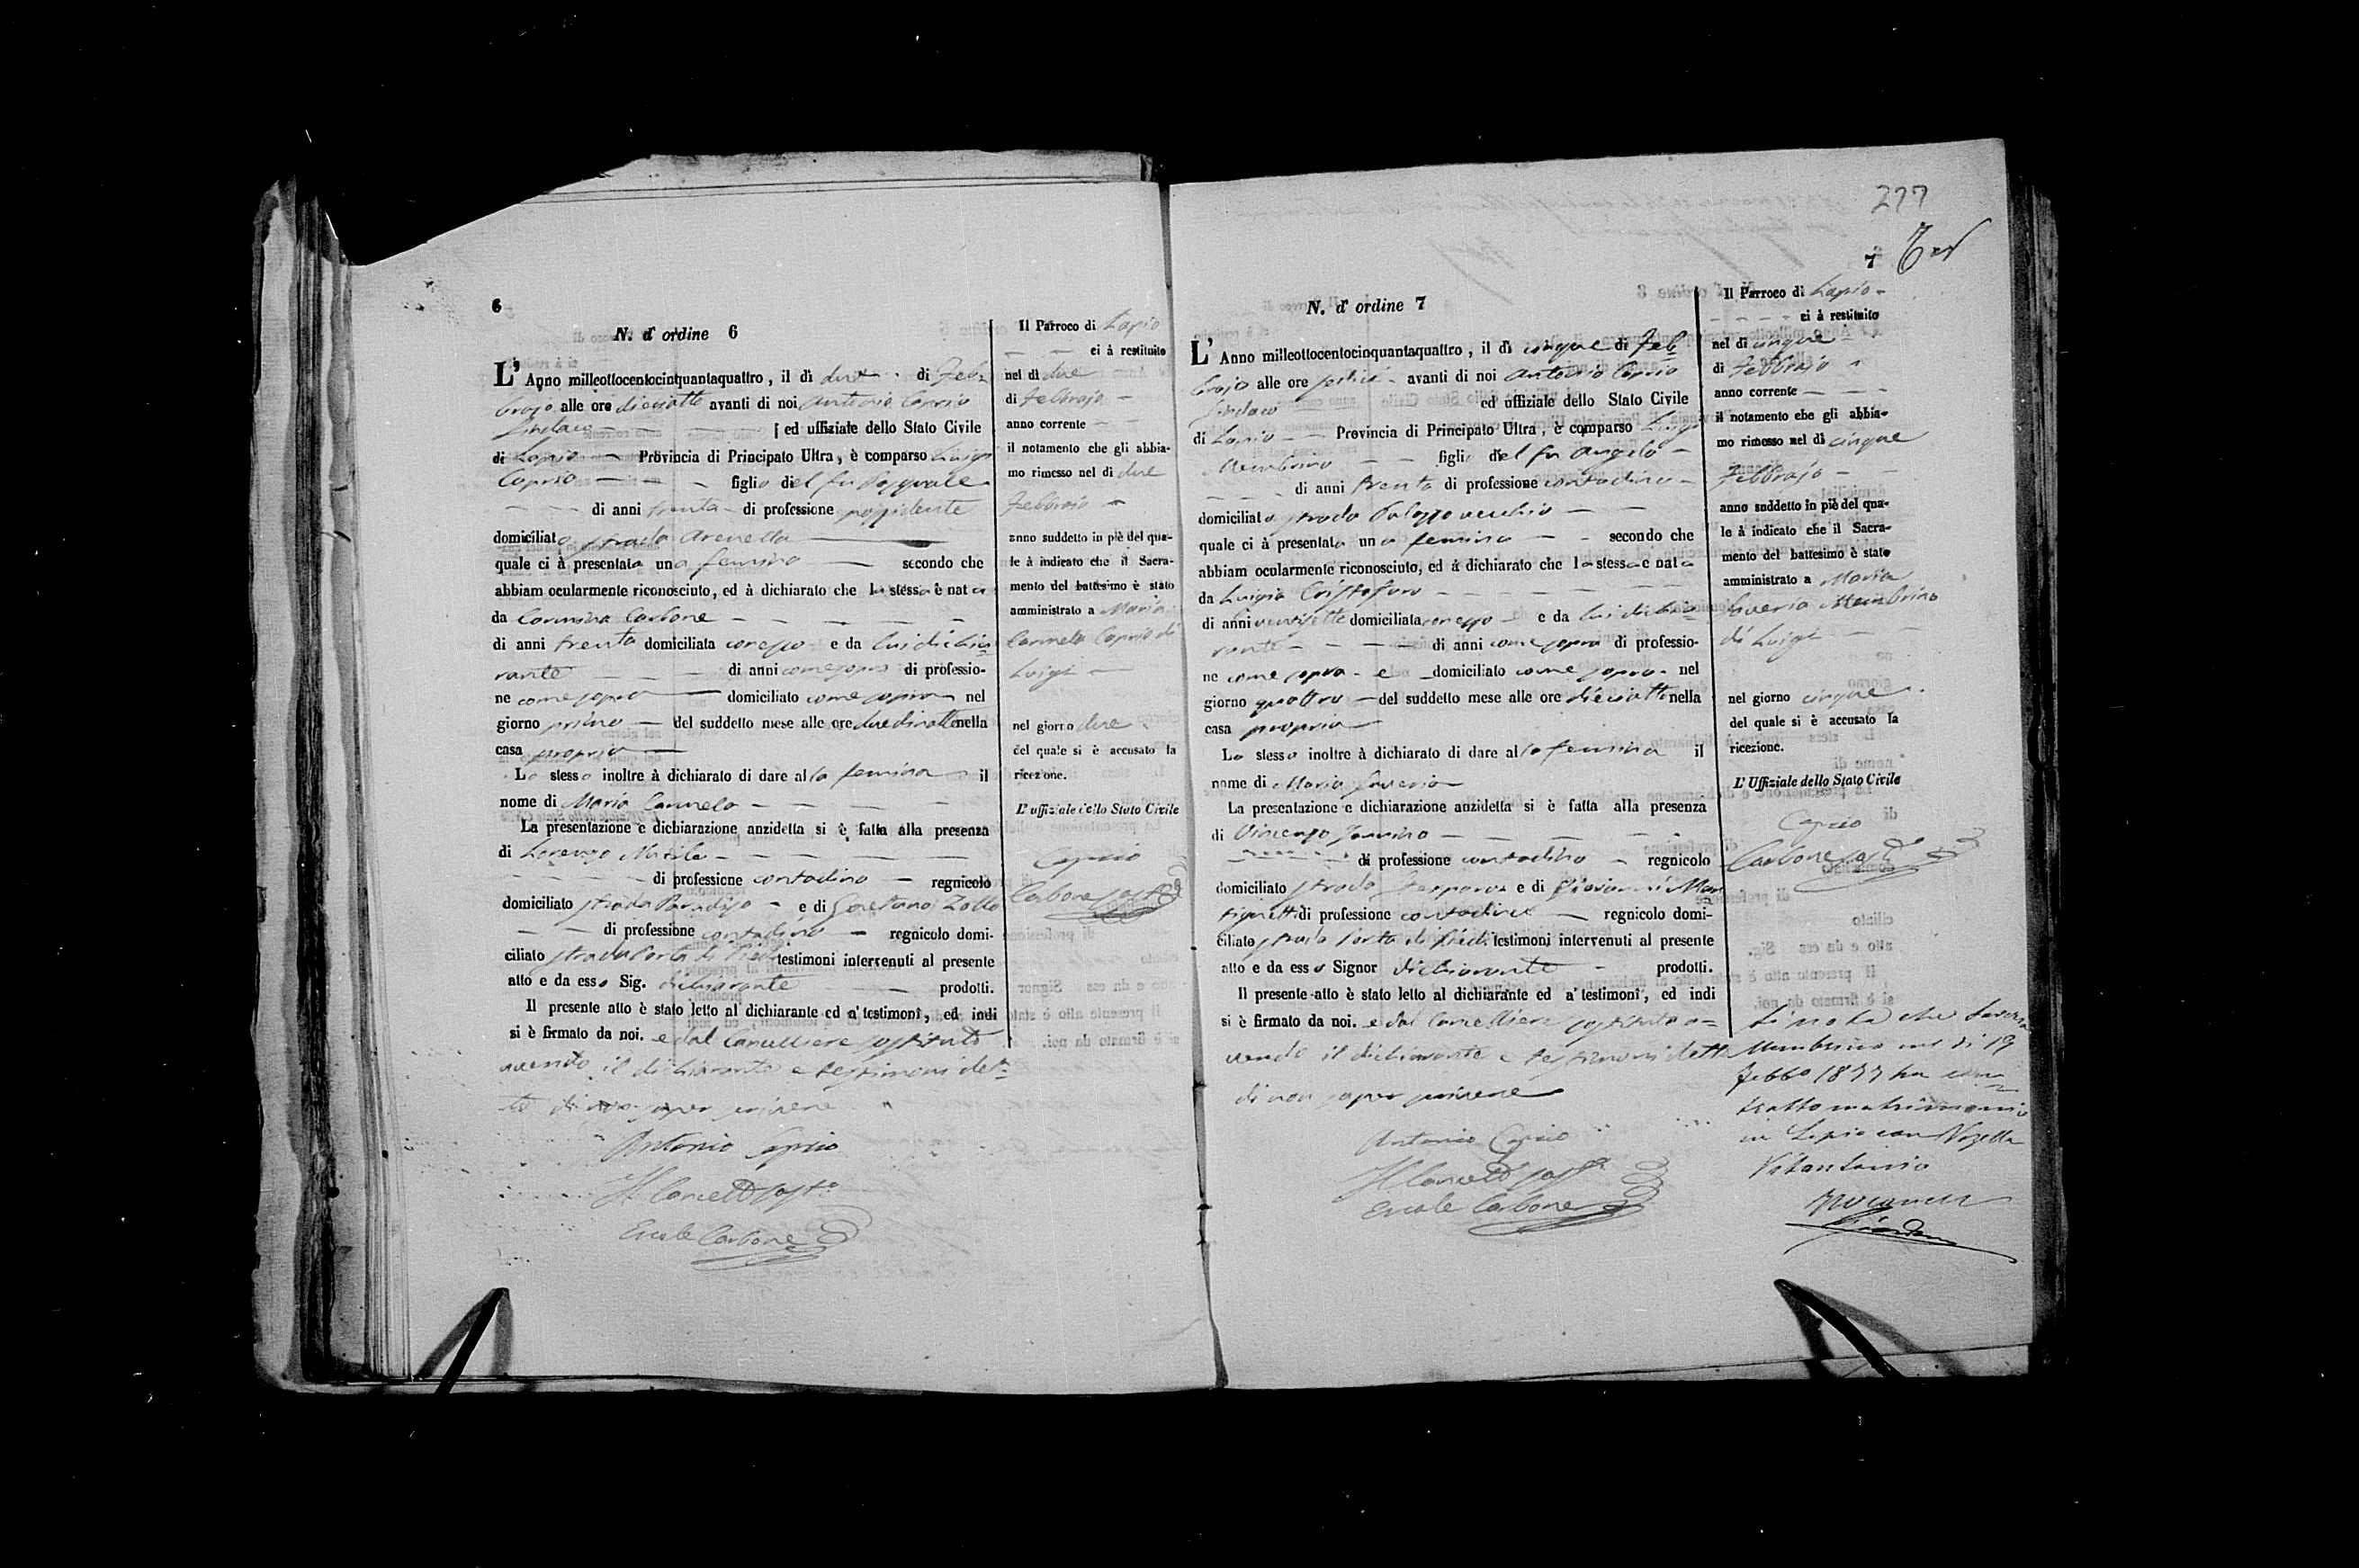 6
N. d' ordine 6
L' Anno milleottocentocinquantaquattro, il dì due di Feb=
brajo alle ore dieciotto avanti di noi Antonio Caprio
Sindaco ed uffiziale dello Stato Civile
di Lapio Provincia di Principato Ultra, è comparso Luigi
Caprio figlio del fu Pasquale
di anni trenta di professione possidente
domiciliato strada Arenella
quale ci à presentata una femina secondo che
abbiam ocularmente riconosciuto, ed à dichiarato che la stessa è nata
da Carmina Carbone
di anni trenta domiciliata con esso e da lui dichia=
rante di anni come sopra di professio-
ne come sopra domiciliato come sopra nel
giorno primo del suddetto mese alle ore due di notte nella
casa propria
Lo stesso inoltre à dichiarato di dare alla femina il
nome di Maria Carmela
La presentazione e dichiarazione anzidetta si è fatta alla presenza
di Lorenzo
di professione contadino regnicolo
domiciliato strada Paradiso e di Gaetano Zollo
di professione contadino regnicolo domi-
ciliato strada Porta di Piedi testimoni intervenuti al presente
atto e da esso Sig. dichiarante prodotti.
Il presente atto è stato letto al dichiarante ed a' testimonî, ed indi
si è firmato da noi. e dal Cancelliere sostituto
avendo il dichiarante e testimoni det=
to di non saper scrivere
Antonio Caprio
Il Cancell. sost.o
Ercole Carbone
Il Parroco di Lapio
ci à restituito
nel di due
di Febbrajo
anno corrente
il notamento che gli abbia-
mo rimesso nel dì due
Febbrajo
anno suddetto in piè del qua-
le à indicato che il Sacra-
mento del battesimo è stato
amministrato a Maria
Carmela Caprio di
Luigi
nel giorno due
del quale si è accusato la
ricezione.
L' uffiziale dello Stato Civile
Caprio
Carbone sost.o
277
7
N. d' ordine 7
L' Anno milleottocentocinquantaquattro, il dì cinque di Feb=
brajo alle ore avanti di noi Antonio Caprio
Sindaco ed uffiziale dello Stato Civile
di Lapio Provincia di Principato Ultra, è comparso Luigi
Membrino figlio del fu Angelo
di anni trenta di professione contadino
domiciliato strada Palazzo vecchio
quale ci à presentata una femina secondo che
abbiam ocularmente riconosciuto, ed à dichiarato che la stessa è nata
da Luigia Cristofaro
di anni ventisette domiciliata con esso e da lui dichia=
rante di anni come sopra di professio-
ne come sopra e domiciliato come sopra nel
giorno quattro del suddetto mese alle ore dieciotto nella
casa propria
Lo stesso inoltre à dichiarato di dare alla femina il
nome di Maria Saveria
La presentazione e dichiarazione anzidetta si è fatta alla presenza
di Vincenzo
di professione contadino regnicolo
domiciliato strada e di Giovanni Mar
tignetti di professione contadino regnicolo domi-
ciliato strada Porta di Piedi testimoni intervenuti al presente
atto e da esso Signor dichiarante prodotti.
Il presente atto è stato letto al dichiarante ed a' testimonî, ed indi
si è firmato da noi. e dal Cancelliere sostituto a=
vendo il dichiarante e testimoni detto
di non saper scrivere
Antonio Caprio
Il Cancell. sost.o
Ercole Carbone
Il Parroco di Lapio
ci à restituito
nel di cinque
di Febbrajo
anno corrente
il notamento che gli abbia-
mo rimesso nel dì cinque
Febbrajo
anno suddetto in piè del qua-
le à indicato che il Sacra-
mento del battesimo è stato
amministrato a Maria
Saveria Membrino
di Luigi
nel giorno cinque
del quale si è accusato la
ricezione.
L' Uffiziale dello Stato Civile
Caprio
Carbone sost.o
Si nota che Saveria
Membrino nel dì 19
Febb.o 1877 ha con=
tratto matrimonio
in Lapio con Nozella
Vitantonio